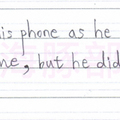 is phone as he
ne, but he did